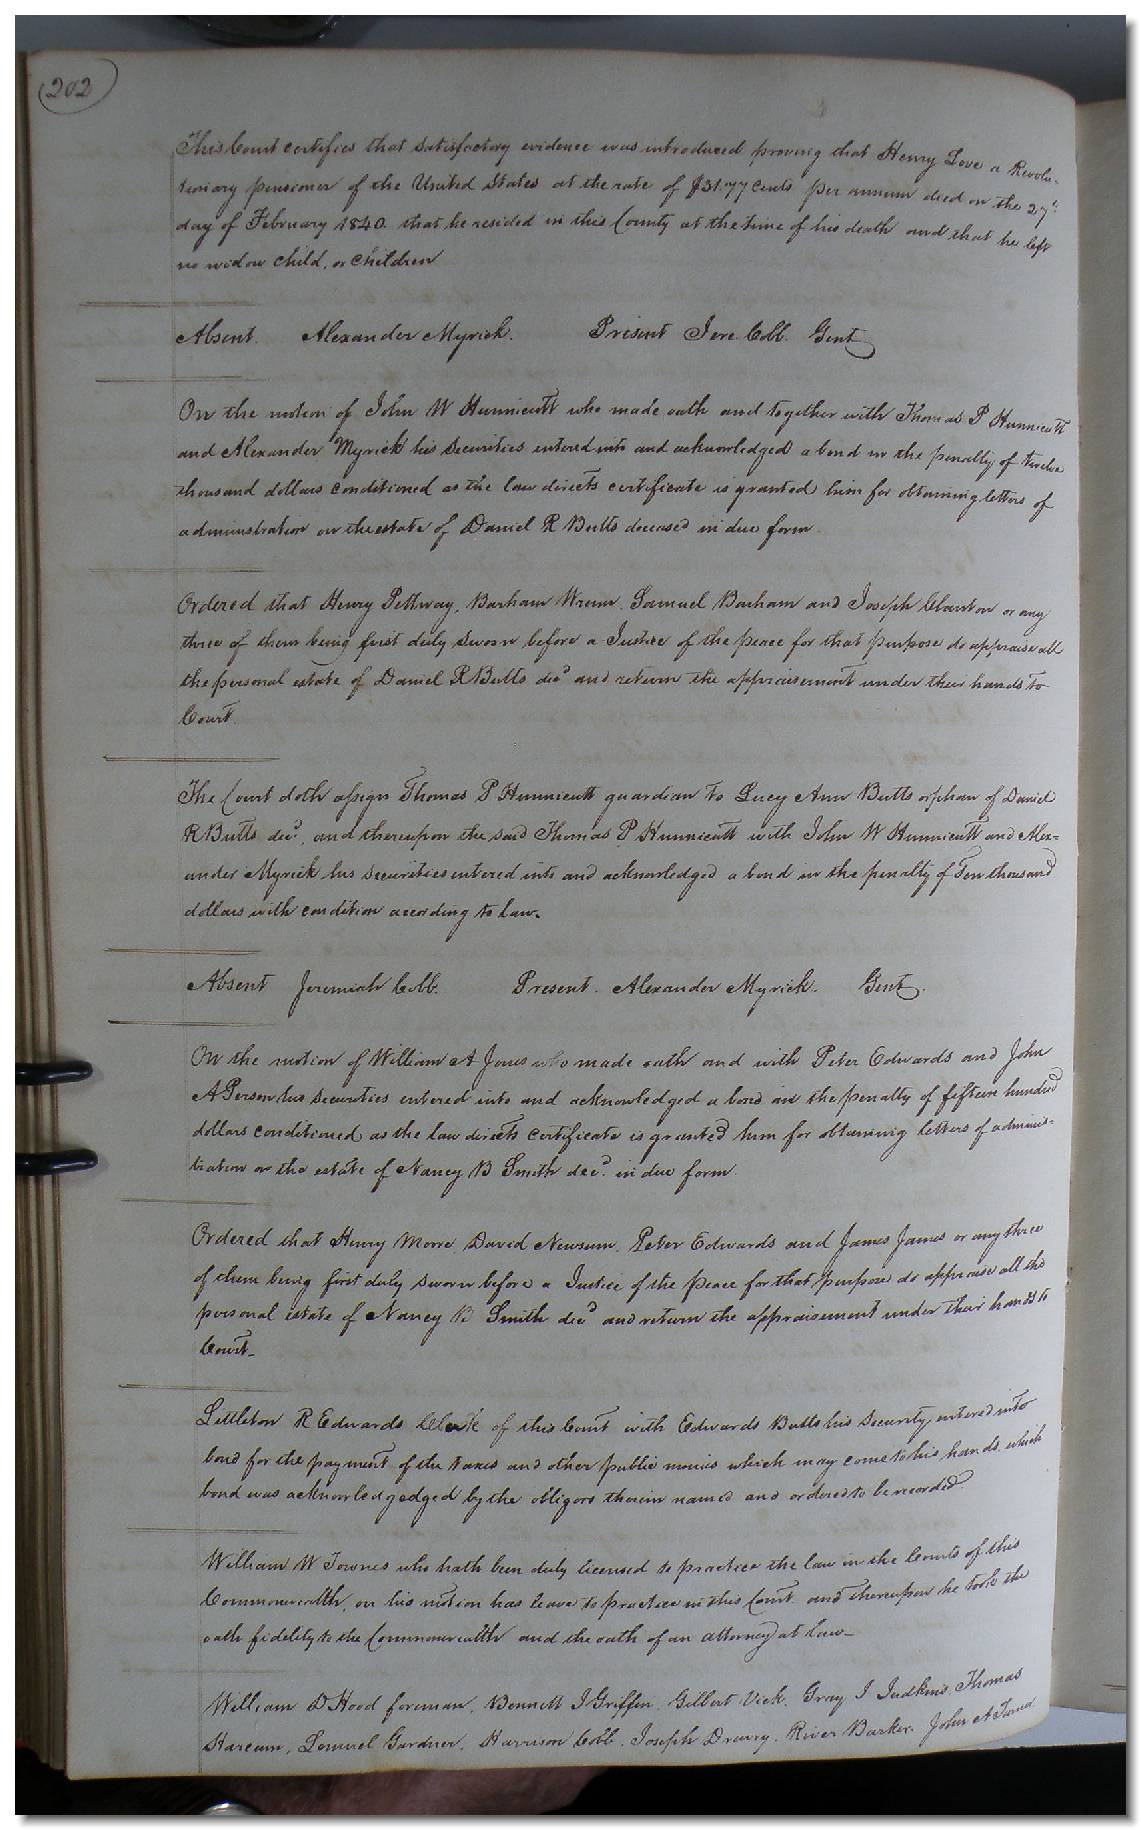 202
This Court certifies that satisfactory evidence was introduced proving that Henry Love a Revolu-
tionary pensioner of the United States at the rate of $31.77 cents per annum died on the 27th
day of February 1840. that he resided in this County at the time of his death and that he left
no widow child, or children
Absent. Alexander Myrick. Present Jere. Cobb. Gent
On the motion of John W Hunnicutt who made oath and together with Thomas P Hunnicutt
and Alexander Myrick his securities entered into and acknowledged a bond in the penalty of twelve
thousand dollars conditioned as the law directs certificate is granted him for obtaining letters of
administration on the estate of Daniel R Butts deceased in due form.
Ordered that Henry Pettway, Barham Wrenn, Samuel Barham and Joseph Claunton or any
three of them being first duly sworn before a Justice of the peace for that purpose do appraise all
the personal estate of Daniel R Butts decd and return the appraisement under their hands to
Court.
The Court doth assign Thomas P Hunnicutt guardian to Lucy Ann Butts orphan of Daniel
R Butts decd, and thereupon the said Thomas P Hunnicutt with John W Hunnicutt and Alex-
ander Myrick his securities entered into and acknowledged a bond in the penalty of Ten thousand
dollars with condition according to law.
Absent Jeremiah Cobb. Present. Alexander Myrick. Gent.
On the motion of William A Jones who made oath and with Peter Edwards and John
A Person his securities entered into and acknowledged a bond in the penalty of fifteen hundred
dollars conditioned as the law directs certificate is granted him for obtaining letters of adminis-
tration on the estate of Nancy B Smith decd. in due form.
Ordered that Henry Moore, David Newsum, Peter Edwards and James James or any three
of them being first duly sworn before a Justice of the peace for that purpose do appraise all the
personal estate of Nancy B Smith decd and return the appraisement under their hands to
Court.
Littleton R Edwards Clerk of this Court with Edwards Butts his security entered into
bond for the payment of the taxes and other public monies which may come to his hands, which
bond was acknowledgedged by the obligors therein named and ordered to be recorded.
William W Townes who hath been duly licensed to practice the law in the Courts of this
Commonwealth, on his motion has leave to practice in this Court. and thereupon he took the
oath fidelity to the Commonwealth and the oath of an attorney at law
William D Hood foreman, Bennett J Griffin, Gilbert Vick, Gray J Judkins, Thomas
Harcum, Lemuel Gardner, Harrison Cobb, Joseph Drewry, River Barker, John A Turner